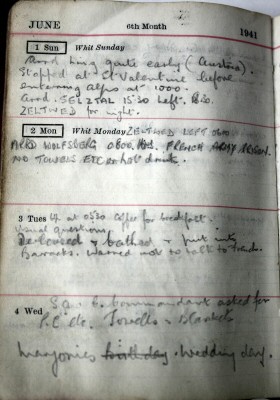 JUNE 6th Month 1941
1 Sun Whit Sunday
Arvd Linz quite early (Austria).
Stopped at St Valentine before
entering Alps at 1000.
Arvd. SELZTAL 1530 Left.
ZELTWEG for night.
2 Mon Whit Monday ZELTWEG LEFT 0600.
ARRD WOLFSBERG 0800. HRS. FRENCH ARMY
NO TOWELS ETC or hot drink.
3 Tues Up at 0530 for breakfast.
Usual questions
Deloused & bathed & put into
barracks. Warned not to talk to French.
4 Wed Commandant asked for
P.C. etc. Towells & Blankets
Marjories birthday. Wedding day.